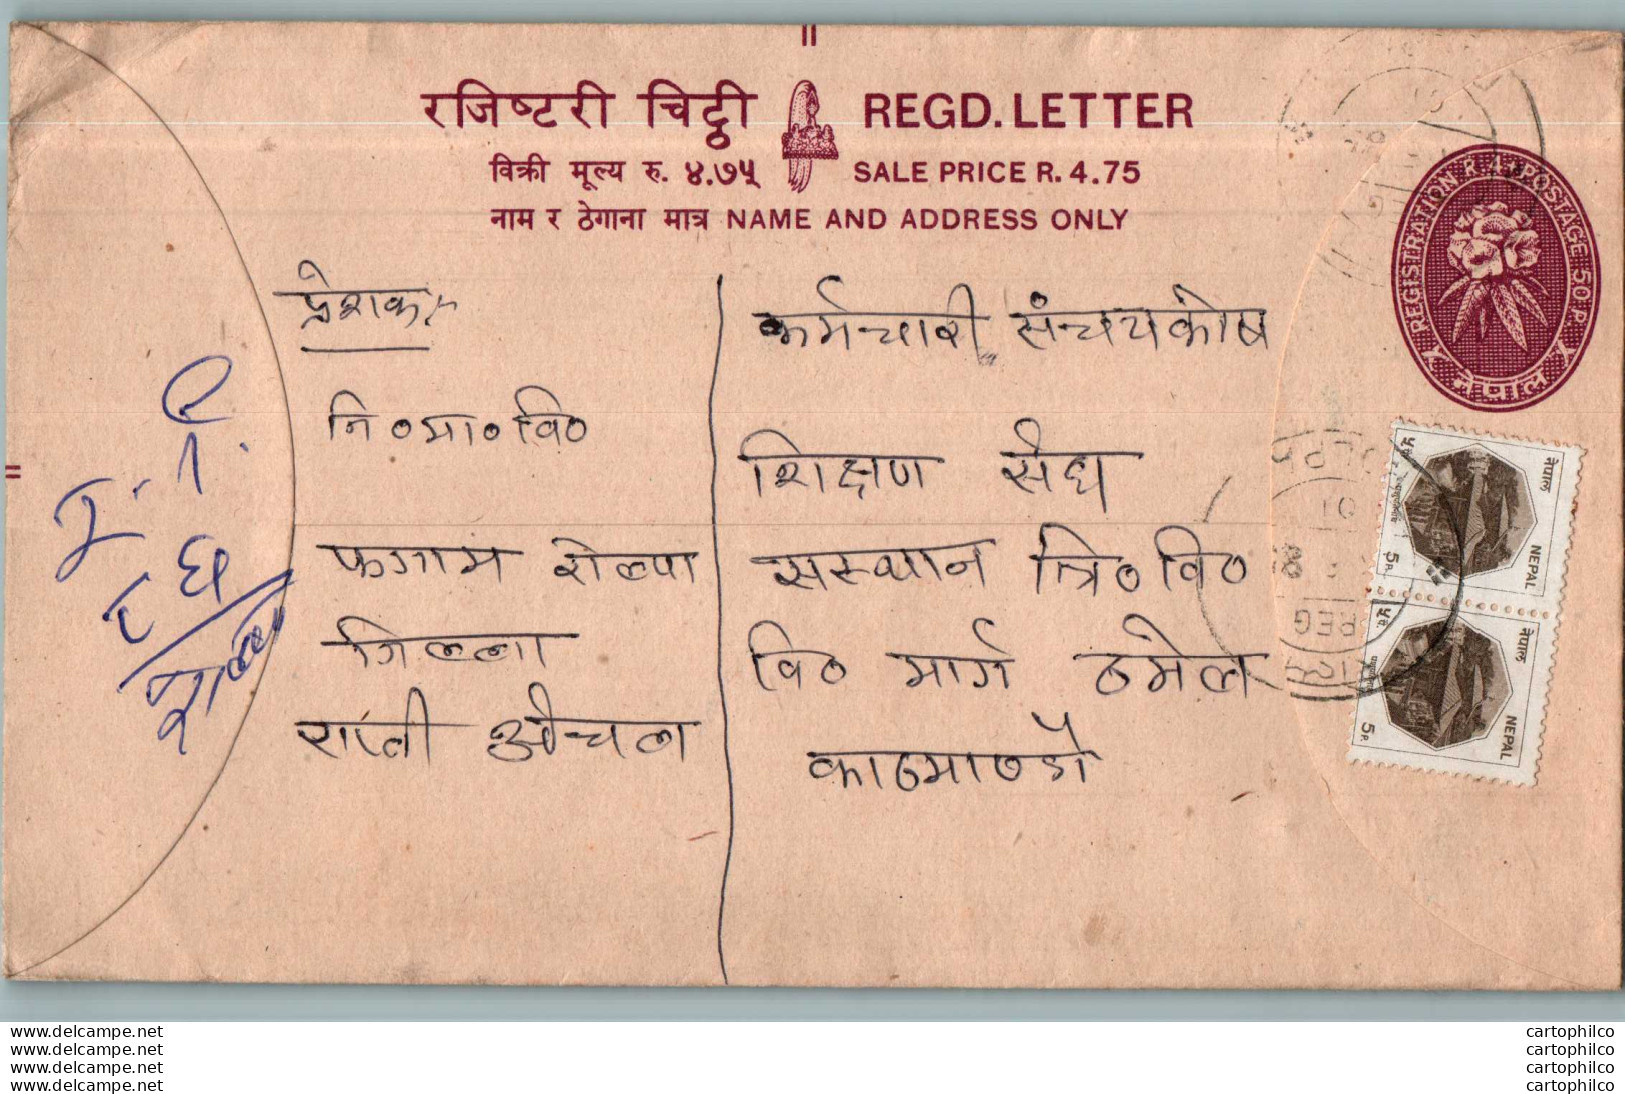 रजिष्टरी चिठ्ठी REGD. LETTER
विक्री मूल्य रु. ४.७५ SALE PRICE R. 4.75
नाम र ठेगाना मात्र NAME AND ADDRESS ONLY
REGISTRATION R. 4, POSTAGE 50 P.
नेपाल
प्रेशक:-
नि०मा०वि०
फगाम रोल्पा
जिल्ला
राप्ती अंचल
कर्मचारी संचयकोष
शिक्षण संघ
सस्थान त्रि०वि०
वि० मार्ग ठमेल
काठमाण्डौ
नेपाल
NEPAL
5 P.
नेपाल
NEPAL
5 P.
REG
www.delcampe.net
www.delcampe.net
www.delcampe.net
www.delcampe.net
cartophilco
cartophilco
cartophilco
cartophilco